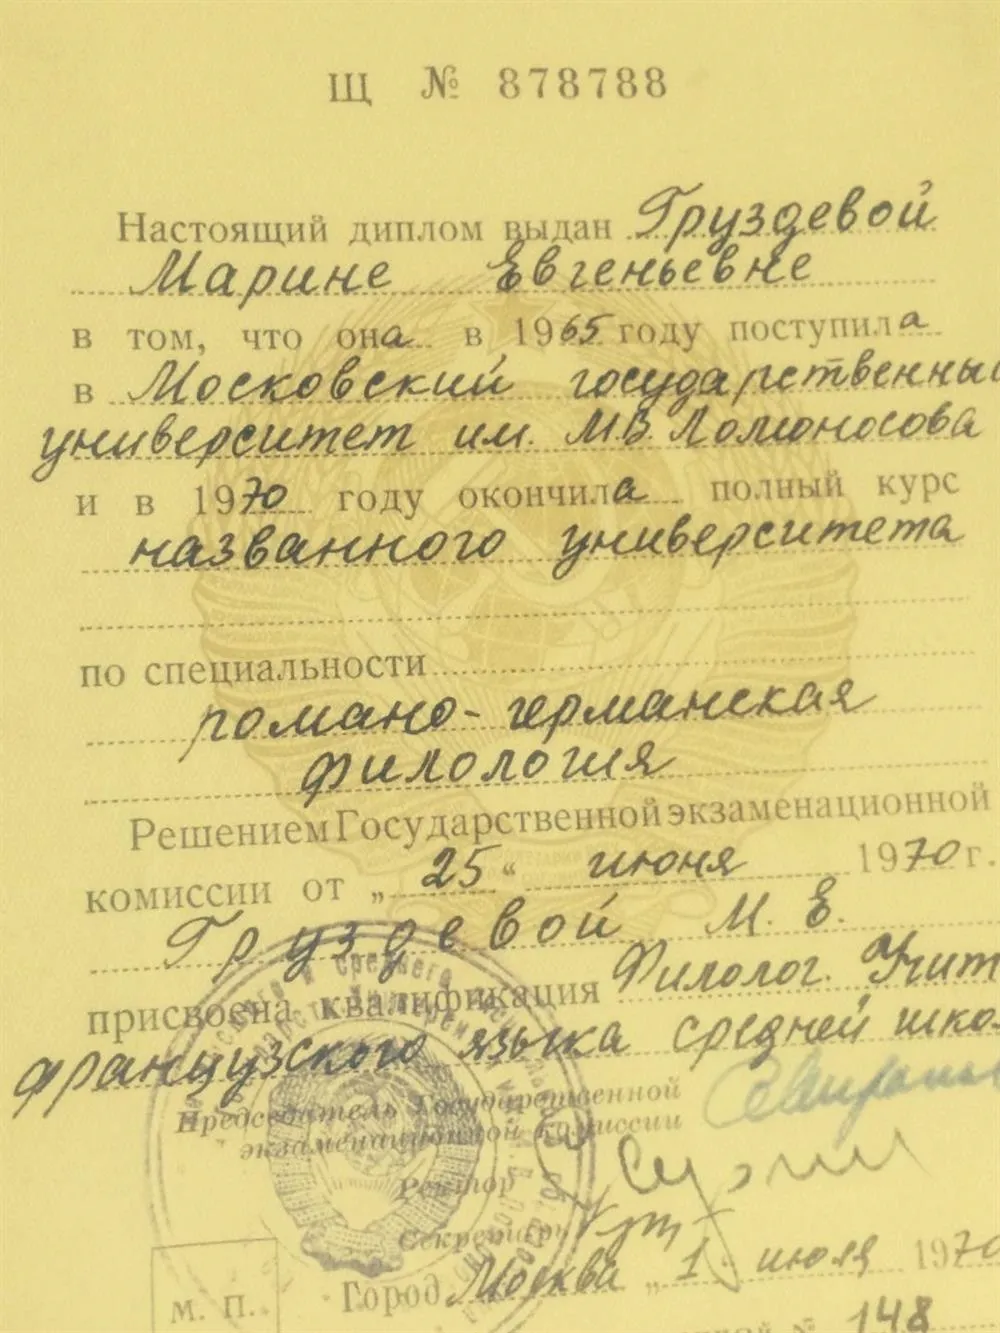 Щ № 878788
Настоящий диплом выдан Груздевой
Марине Евгеньевне
в том, что она в 1965 году поступила
в Московский государственный
университет им. М.В. Ломоносова
и в 1970 году окончила полный курс
названного университета
по специальности
романо-германская
филология
Решением Государственной экзаменационной
комиссии от „25“ июня 1970 г.
Груздевой М. Е.
присвоена квалификация Филолог. Учит
французского языка средней шко
Председатель Государственной
экзаменационной комиссии
Ректор
Секретарь
Город Москва „1 июля 1970
М. П.
№ 148